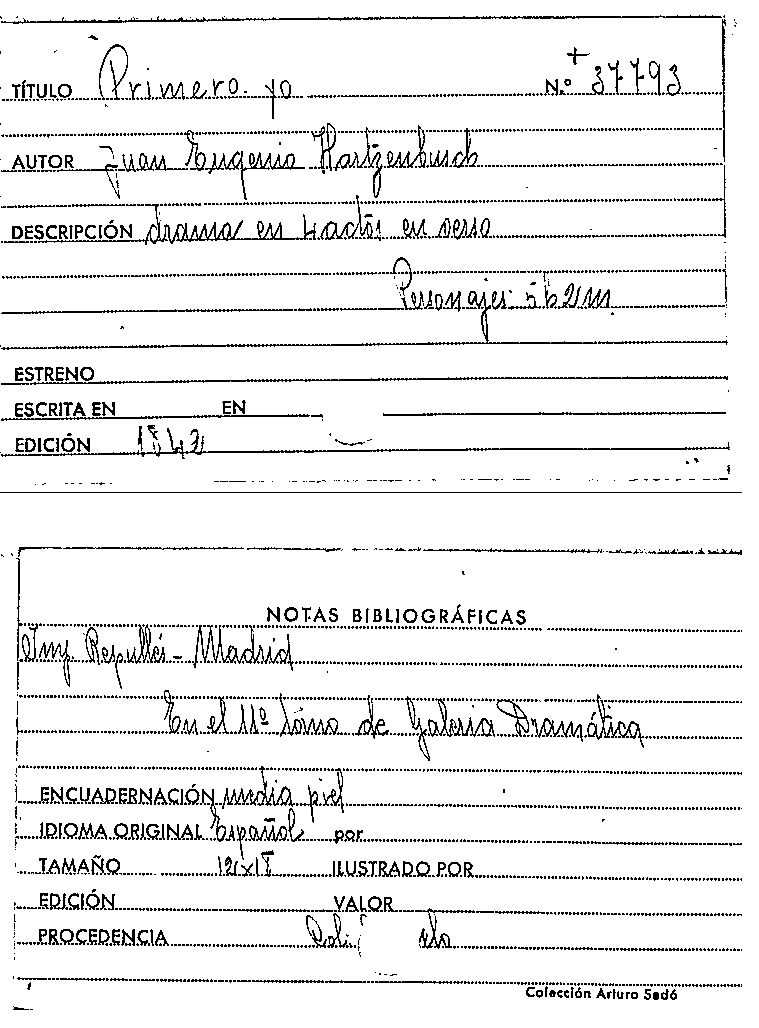 TÍTULO Primero yo N.º + 37793
AUTOR Juan Eugenio Hartzenbusch
DESCRIPCIÓN drama en 4 actos en verso
Personajes: 5 h 2 m
ESTRENO
ESCRITA EN EN
EDICIÓN 1842
NOTAS BIBLIOGRÁFICAS
Imp. Repullés - Madrid
En el 11º tomo de Galeria Dramática
ENCUADERNACIÓN media piel
IDIOMA ORIGINAL Español por
TAMAÑO ILUSTRADO POR
EDICIÓN VALOR
PROCEDENCIA
Colección Arturo Sedó